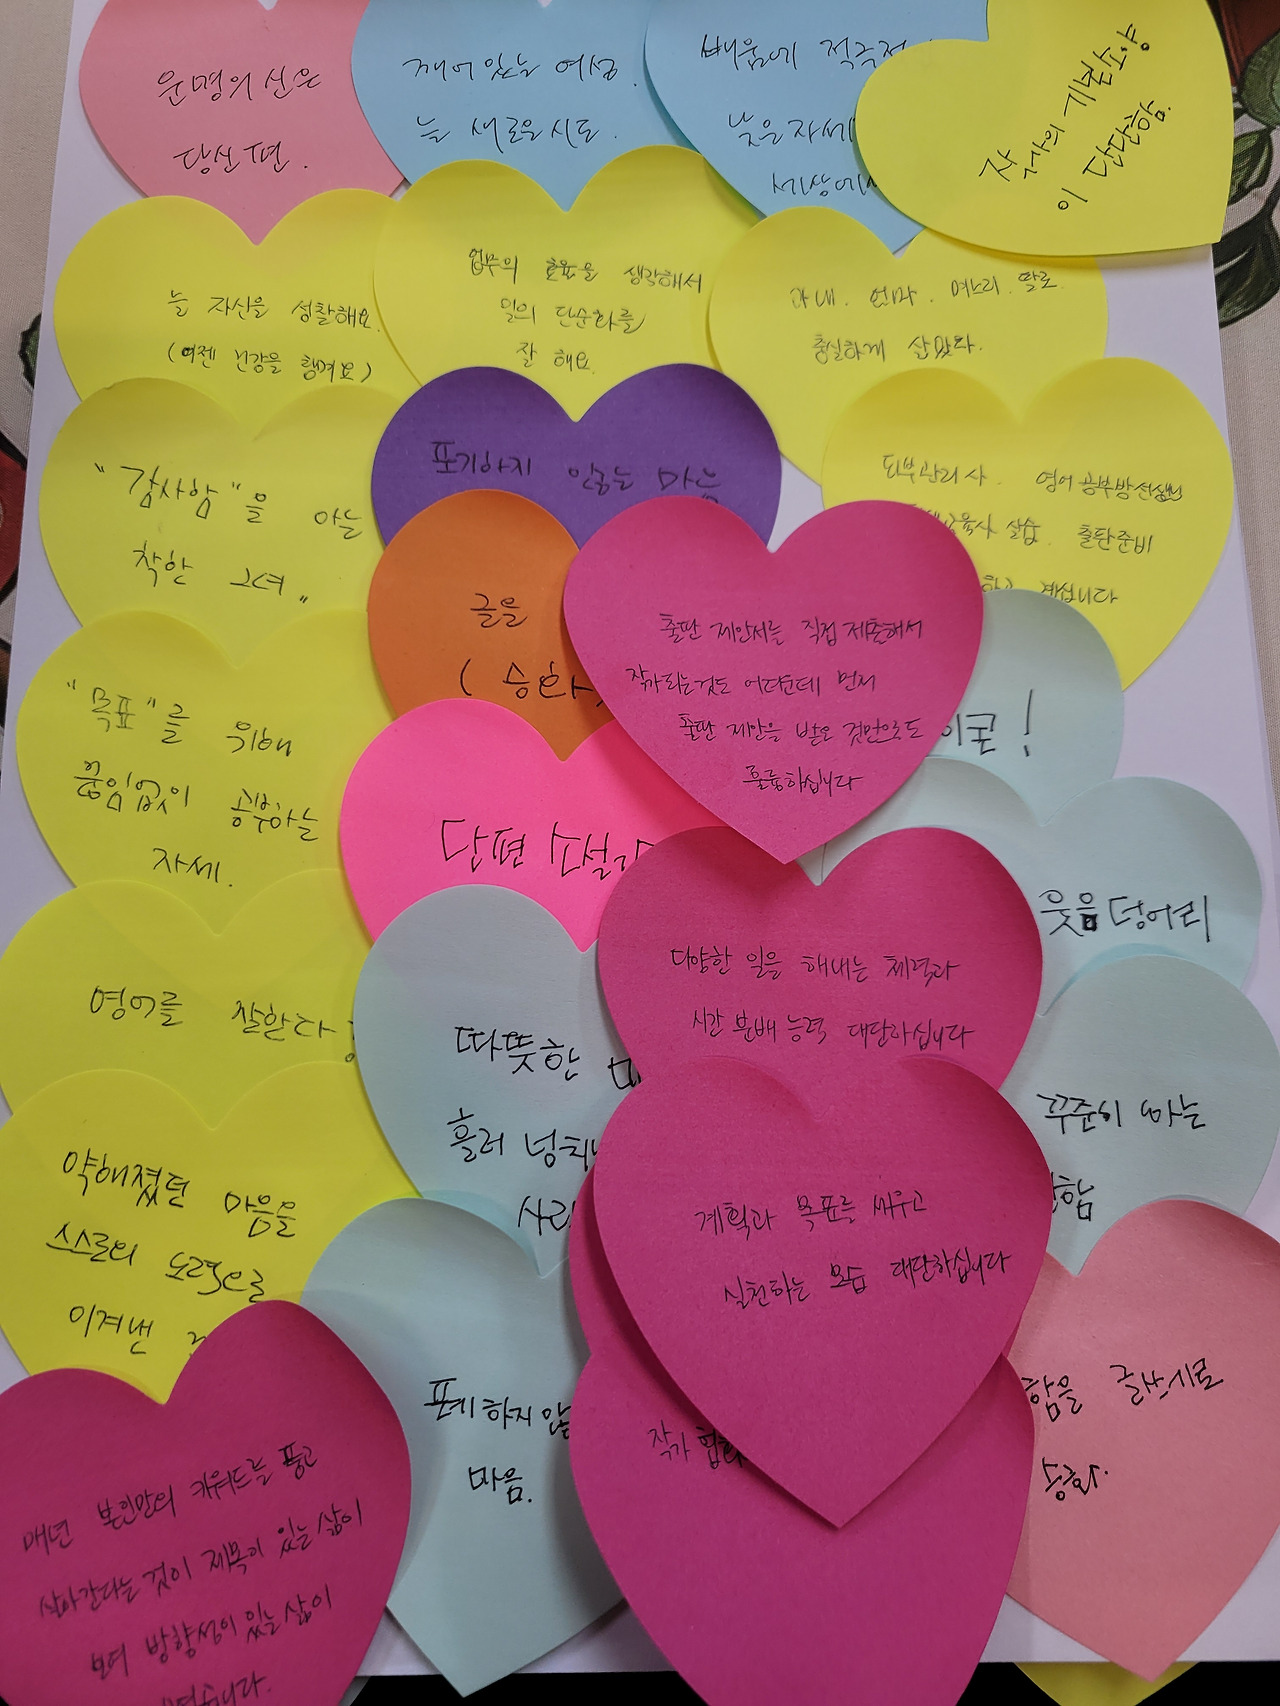 운명의 신은
당신 편.
깨어있는 여성.
늘 새로운 시도.
배움에
낮은 자세
세상에서
작가의 기본 소양
이 탄탄함
늘 자신을 성찰해요.
(이젠 건강을 챙겨요)
업무의 효율을 생각해서
일의 단순화를
잘 해요.
아내. 엄마. 며느리. 딸로
충실하게 살았다.
"감사함"을 아는
착한 그녀"
포기하지 않는 마음
피부관리사. 영어공부방선생님
실습. 출판준비
계십니다
글을
(승화
출판 제안서를 직접 제출해서
작가되는것도 어려운데 먼저
출판 제안을 받은 것만으로도
훌륭하십니다
"목표"를 위해
끊임없이 공부하는
자세.
단편 소설
웃음덩어리
다양한 일을 해내는 체력과
시간 분배 능력 대단하십니다
영어를 잘한다
따뜻한
흘러 넘치
꾸준히 하는
약해졌던 마음을
스스로의 노력으로
이겨낸
계획과 목표를 세우고
실천하는 모습 대단하십니다
포기하지 않
마음.
작가 협회
함을 글쓰기로
승화.
매년 본인만의 키워드를 품고
살아간다는 것이 제목이 있는 삶이
되며 방향성이 있는 삶이